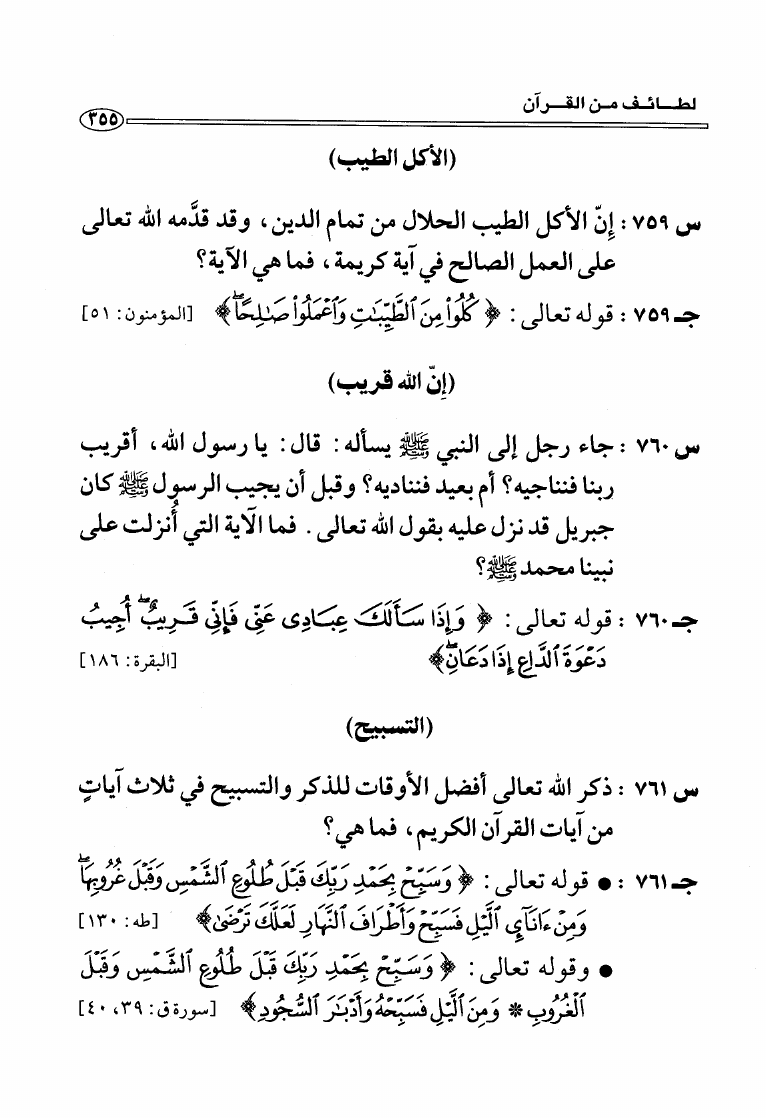 لطائف من القرآن
٣٥٥
(الأكل الطيب)
س ٧٥٩ : إنّ الأكل الطيب الحلال من تمام الدين، وقد قدَّمه الله تعالى
على العمل الصالح في آية كريمة، فما هي الآية؟
جـ ٧٥٩ : قوله تعالى: ﴿ كُلُوا۟ مِنَ ٱلطَّيِّبَٰتِ وَٱعْمَلُوا۟ صَٰلِحًاۖ ﴾ [المؤمنون: ٥١]
(إنّ الله قريب)
س ٧٦٠ : جاء رجل إلى النبي ﷺ يسأله: قال: يا رسول الله، أقريب
ربنا فنناجيه؟ أم بعيد فنناديه؟ وقبل أن يجيب الرسول ﷺ كان
جبريل قد نزل عليه بقول الله تعالى. فما الآية التي أُنزلت على
نبينا محمد ﷺ؟
جـ ٧٦٠ : قوله تعالى: ﴿ وَإِذَا سَأَلَكَ عِبَادِى عَنِّى فَإِنِّى قَرِيبٌۖ أُجِيبُ
دَعْوَةَ ٱلدَّاعِ إِذَا دَعَانِۖ ﴾ [البقرة: ١٨٦]
(التسبيح)
س ٧٦١ : ذكر الله تعالى أفضل الأوقات للذكر والتسبيح في ثلاث آياتٍ
من آيات القرآن الكريم، فما هي؟
جـ ٧٦١ : • قوله تعالى: ﴿ وَسَبِّحْ بِحَمْدِ رَبِّكَ قَبْلَ طُلُوعِ ٱلشَّمْسِ وَقَبْلَ غُرُوبِهَاۖ
وَمِنْ ءَانَآئِ ٱلَّيْلِ فَسَبِّحْ وَأَطْرَافَ ٱلنَّهَارِ لَعَلَّكَ تَرْضَىٰ ﴾ [طه: ١٣٠]
• وقوله تعالى: ﴿ وَسَبِّحْ بِحَمْدِ رَبِّكَ قَبْلَ طُلُوعِ ٱلشَّمْسِ وَقَبْلَ
ٱلْغُرُوبِ * وَمِنَ ٱلَّيْلِ فَسَبِّحْهُ وَأَدْبَٰرَ ٱلسُّجُودِ ﴾ [سورة ق: ٣٩، ٤٠]